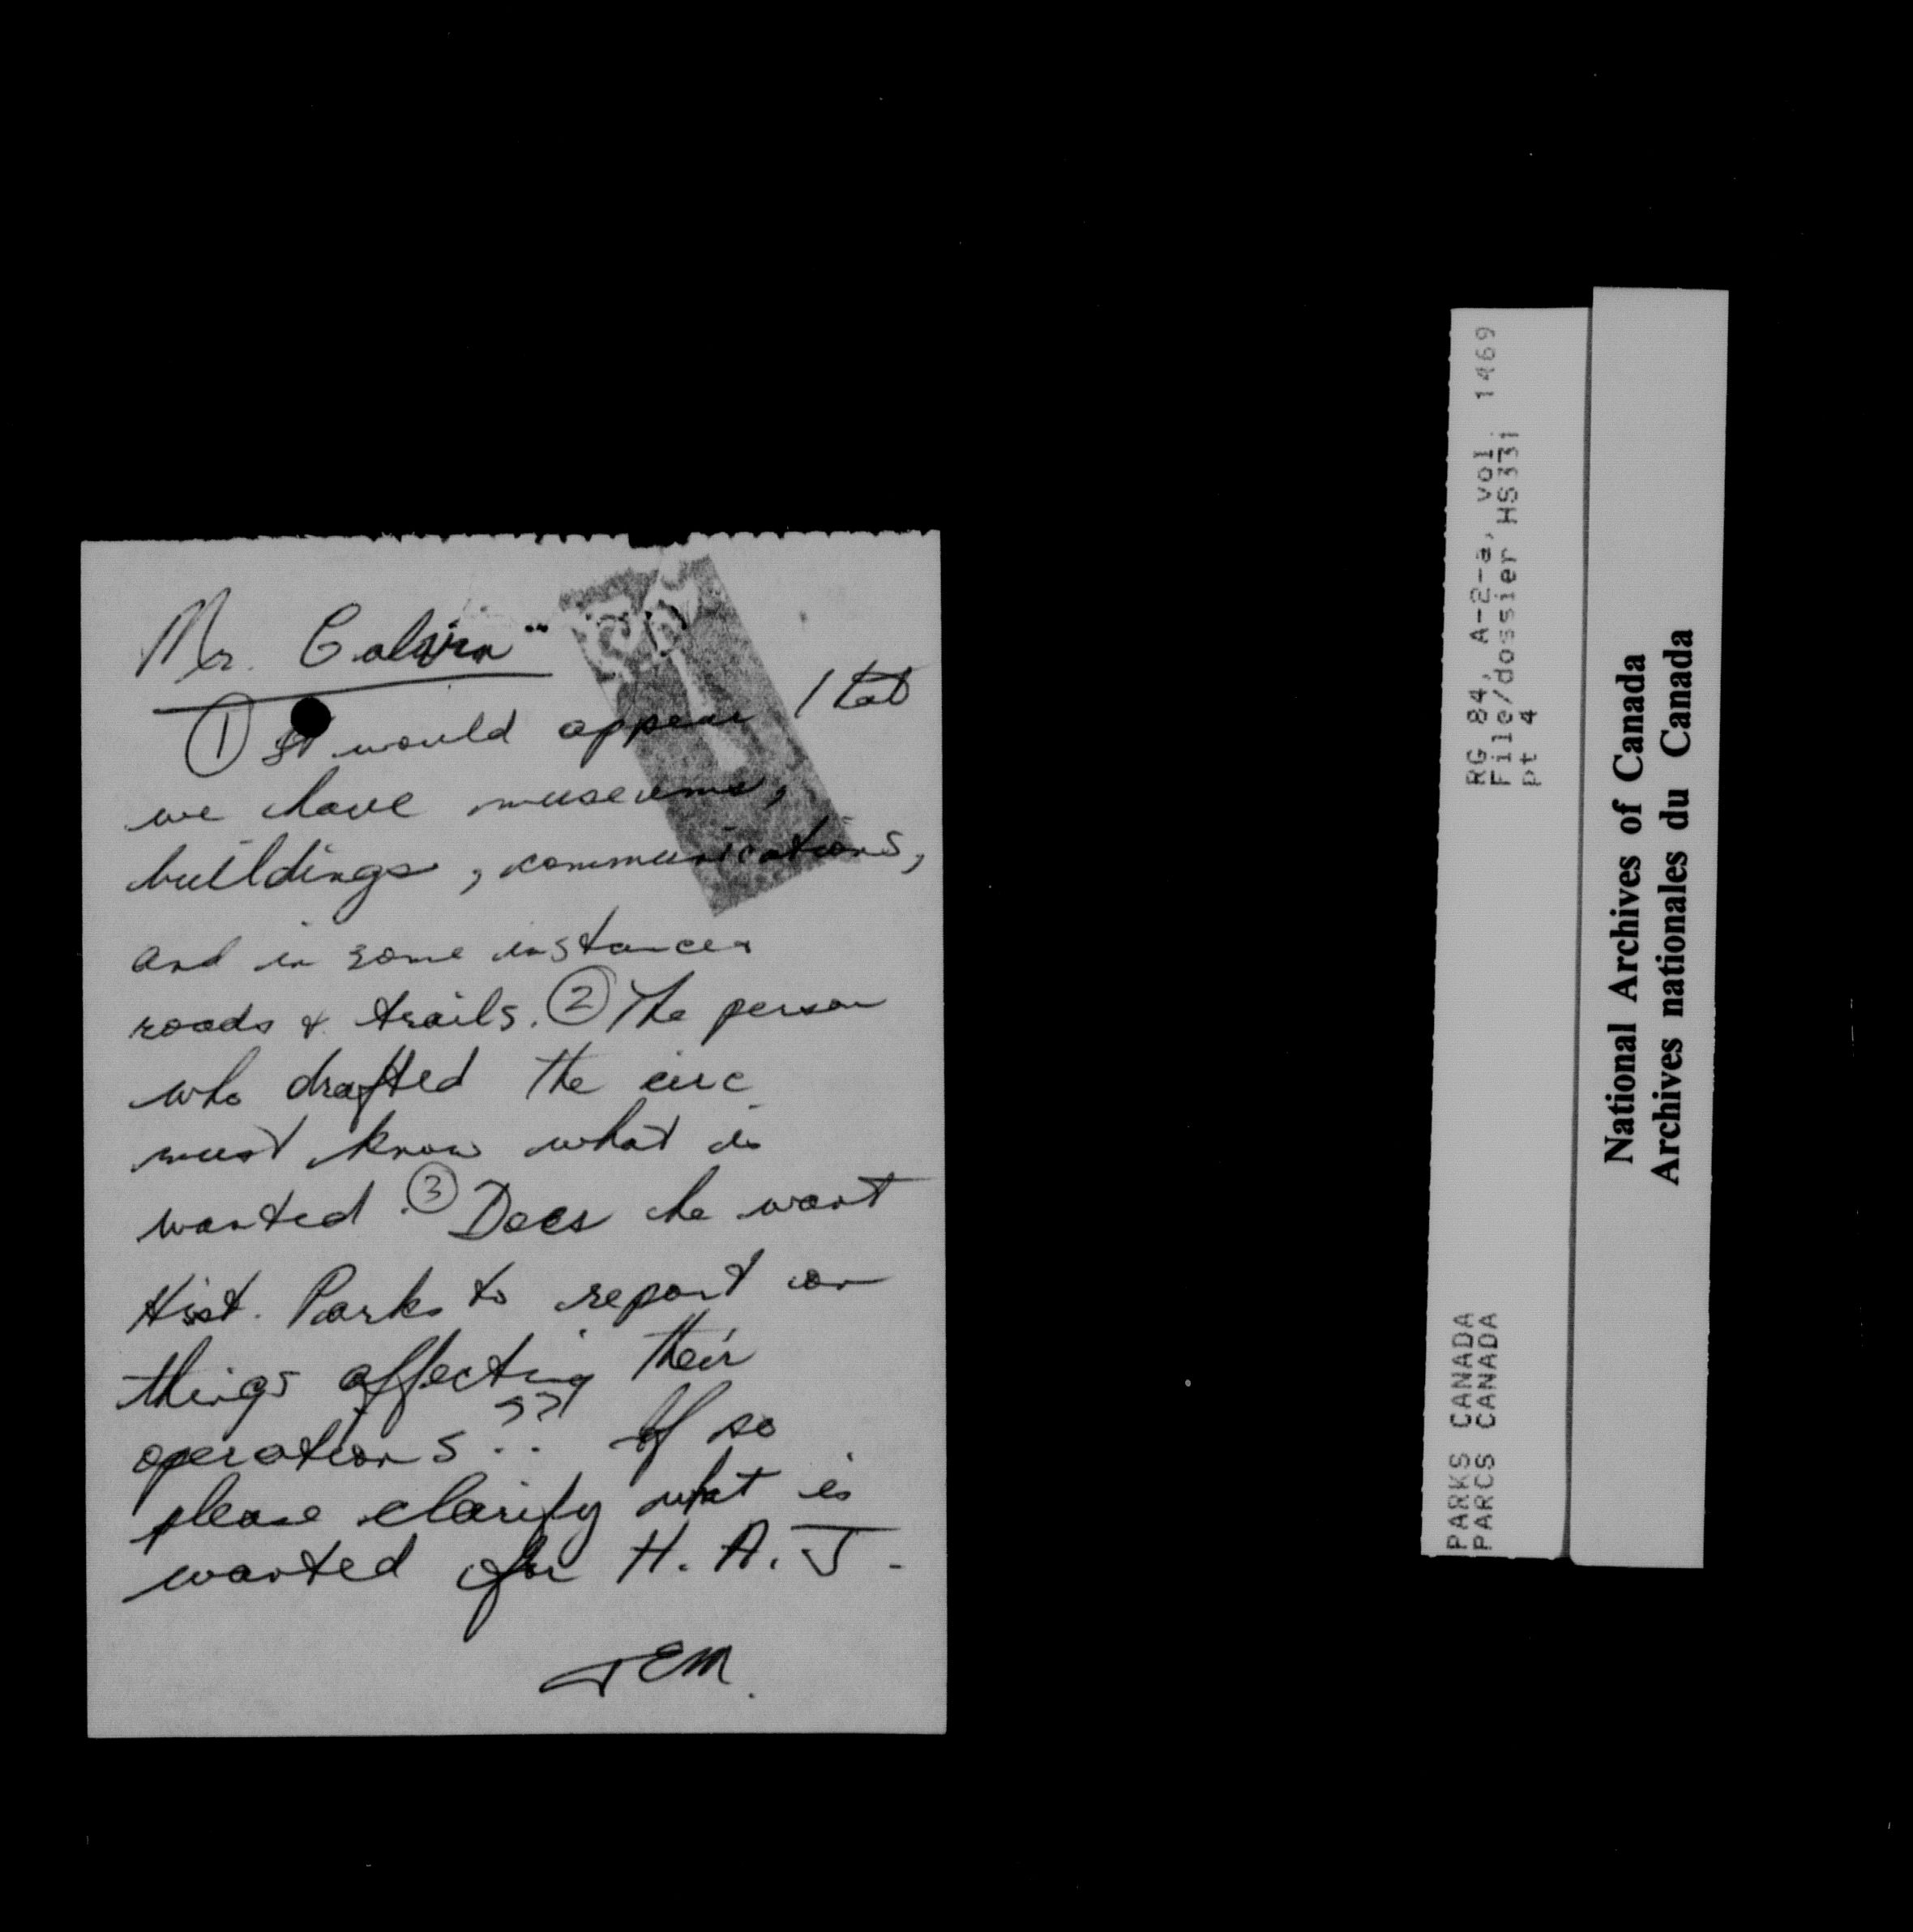 Mr. Calvin
① It would appear that
we have museums,
buildings, communications,
and in some instances
roads & trails. ② The person
who drafted the circ
must know what is
wanted. ③ Does he want
Hist. Parks to report on
things affecting their
operations?? If so
please clarify what is
wanted for H.A.J.
JEM.
PARKS CANADA RG 84, A-2-a, vol. 1469
PARCS CANADA File/dossier HS331
pt 4
National Archives of Canada
Archives nationales du Canada